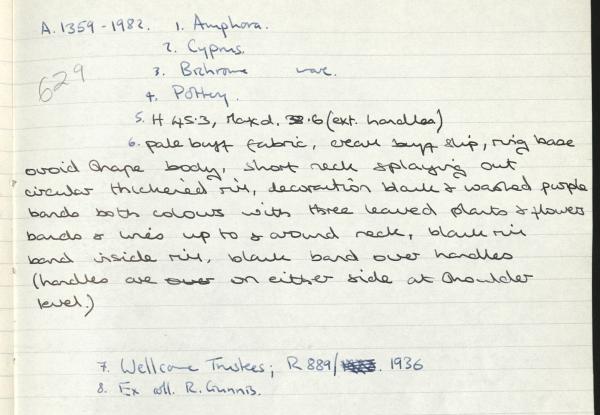 A.1359-1982. 1. Amphora.
2. Cyprus.
3. Bichrome ware.
629
4. Pottery.
5. H 45.3, Max d. 38.6 (ext. handles)
6. pale buff fabric, cream buff slip, ring base
ovoid shape body, short neck splaying out
circular thickened rim, decoration black & washed purple
bands both colours with three leaved plants & flower
bands & lines up to & around neck, black rim
band inside rim, black band over handles
(handles are over on either side at shoulder
level.)
7. Wellcome Trustees; R 889/ . 1936
8. Ex coll. R. Gunnis.